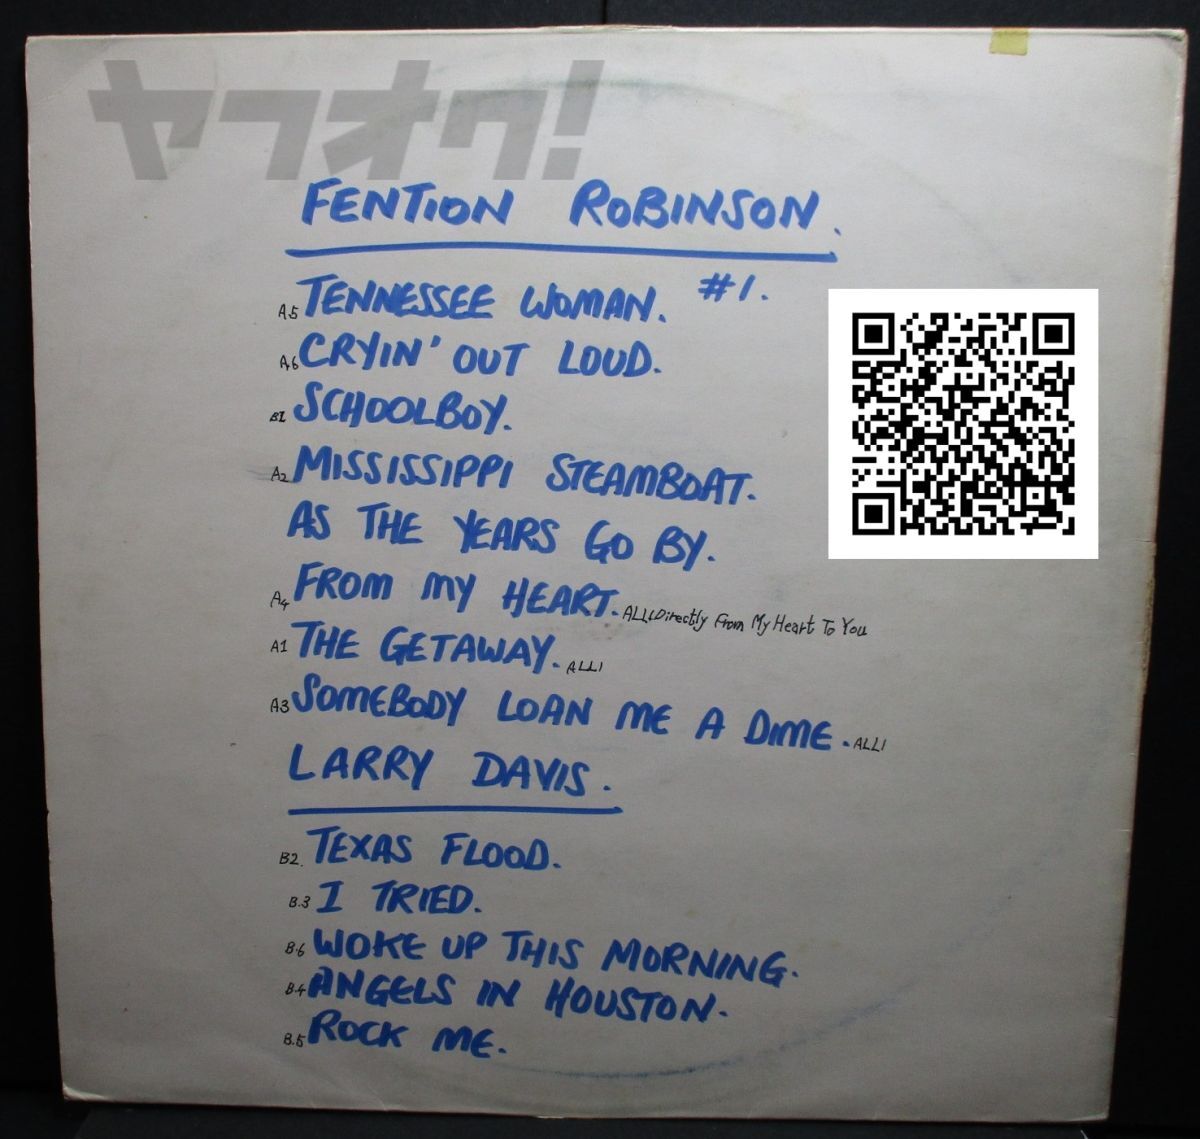 ヤフオク!
FENTION ROBINSON.
A.5 TENNESSEE WOMAN. #1.
A.6 CRYIN' OUT LOUD.
B1 SCHOOLBOY.
A2 MISSISSIPPI STEAMBOAT.
AS THE YEARS GO BY.
A4 FROM MY HEART. ALLI Directly From My Heart To You
A1 THE GETAWAY. ALLI
A3 SOMEBODY LOAN ME A DIME. ALLI
LARRY DAVIS.
B2. TEXAS FLOOD.
B.3 I TRIED.
B.6 WOKE UP THIS MORNING.
B.4 ANGELS IN HOUSTON.
B.5 ROCK ME.